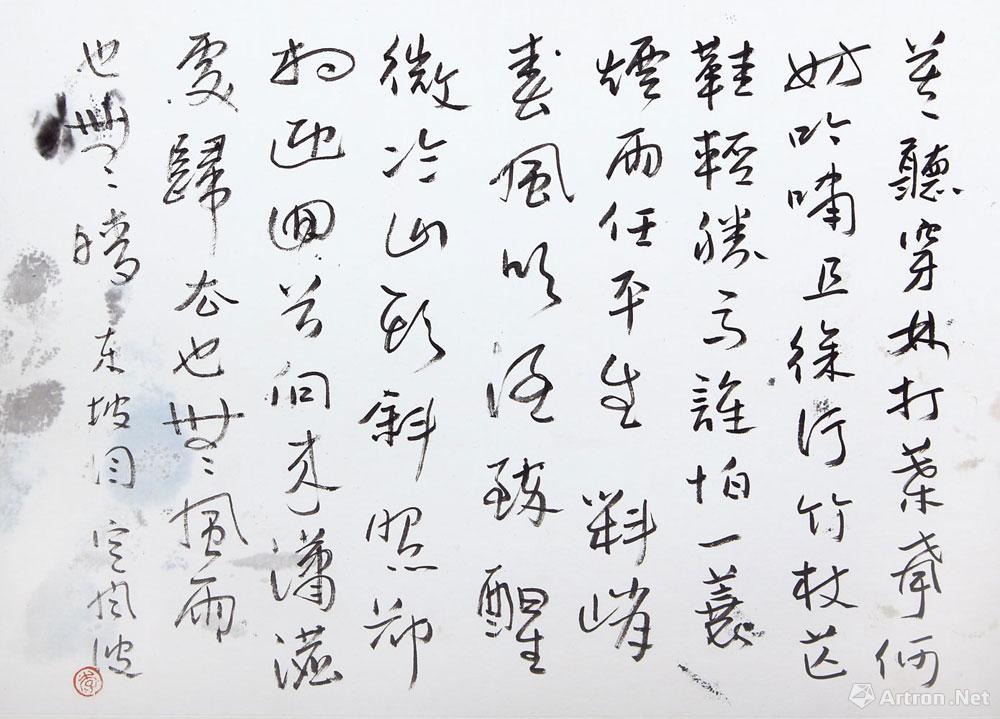 莫聽穿林打葉聲何
妨吟嘯且徐行竹杖芒
鞋輕勝馬誰怕一蓑
煙雨任平生 料峭
春風吹酒醒
微冷山頭斜照却
相迎回首向来瀟
處歸去也無風雨
也無晴 东坡词 定風波
Artron.Net